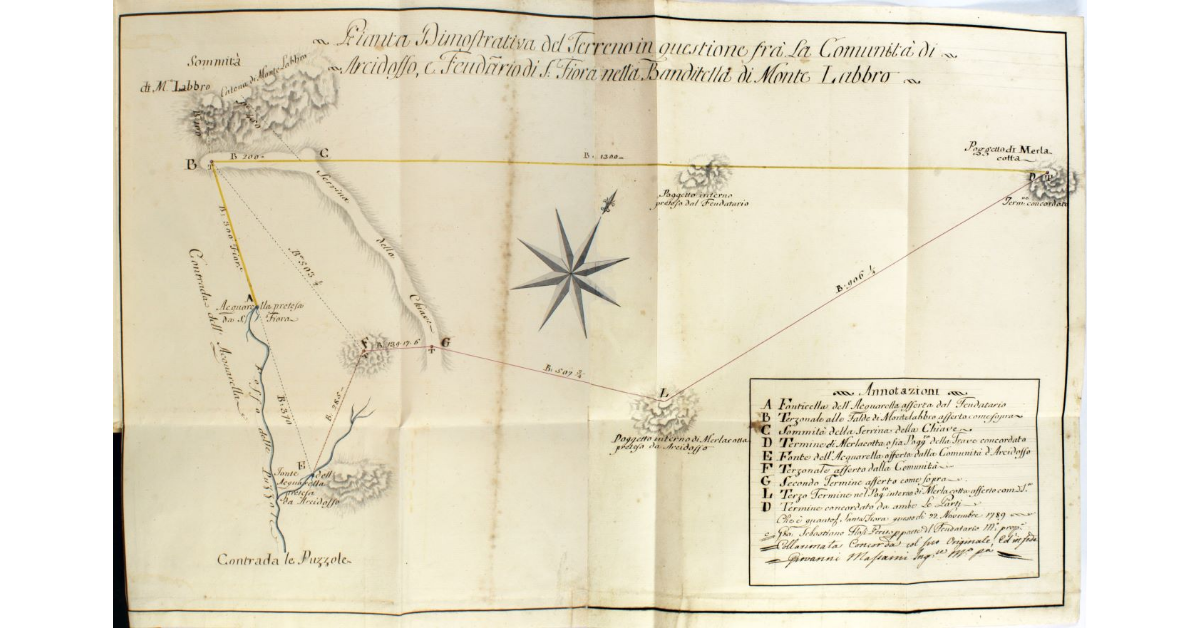 Pianta Dimostrativa del Terreno in questione frà La Comunità di
Arcidosso, e Feudario di S. Fiora nella Banditella di Monte Labbro
Sommità
di M. Labbro
Catena di Monte Labbro
B
B. 200
C
B. 1300
Poggetto di Merla
cotta
D
Term. concordato
Poggetto interno
preteso dal Feudatario
Serrina
della
Chiave
B. 300 Fiori
B. 503 ¼
B. 906 ¼
Contrada dell' Acquarella
A
Acquarella pretesa
da S. Fiora
F
B. 139.17.6
G
B. 507 ¾
L
Poggetto interno di Merlacotta
preteso da Arcidosso
Fosso delle Puzzole
B. 370
B. 285
E
Fonte dell'
Acquarella
pretesa
da Arcidosso
Contrada le Puzzole
Annotazioni
A Fonticella dell'Acquarella asserta dal Feudatario
B Terzonale alle Falde di Montelabbro asserta come sopra
C Sommità della Serrina della Chiave
D Termine di Merlacotta o sia Pogg. della Trave concordato
E Fonte dell'Acquarella asserta dalla Comunità d'Arcidosso
F Terzonale asserto dalla Comunità
G Secondo Termine asserto come sopra
L Terzo Termine nel Pog. interno di Merlacotta asserto com S.
D Termine concordato da ambe Le Parti
Che è quanto Santa Fiora questo dì 22 Novembre 1789
Sebastiano perito p parte del Feudatario M. prop.
Collazionata Concorda col suo Originale, ed in fede
Giovanni Massarni Ing. M. pa